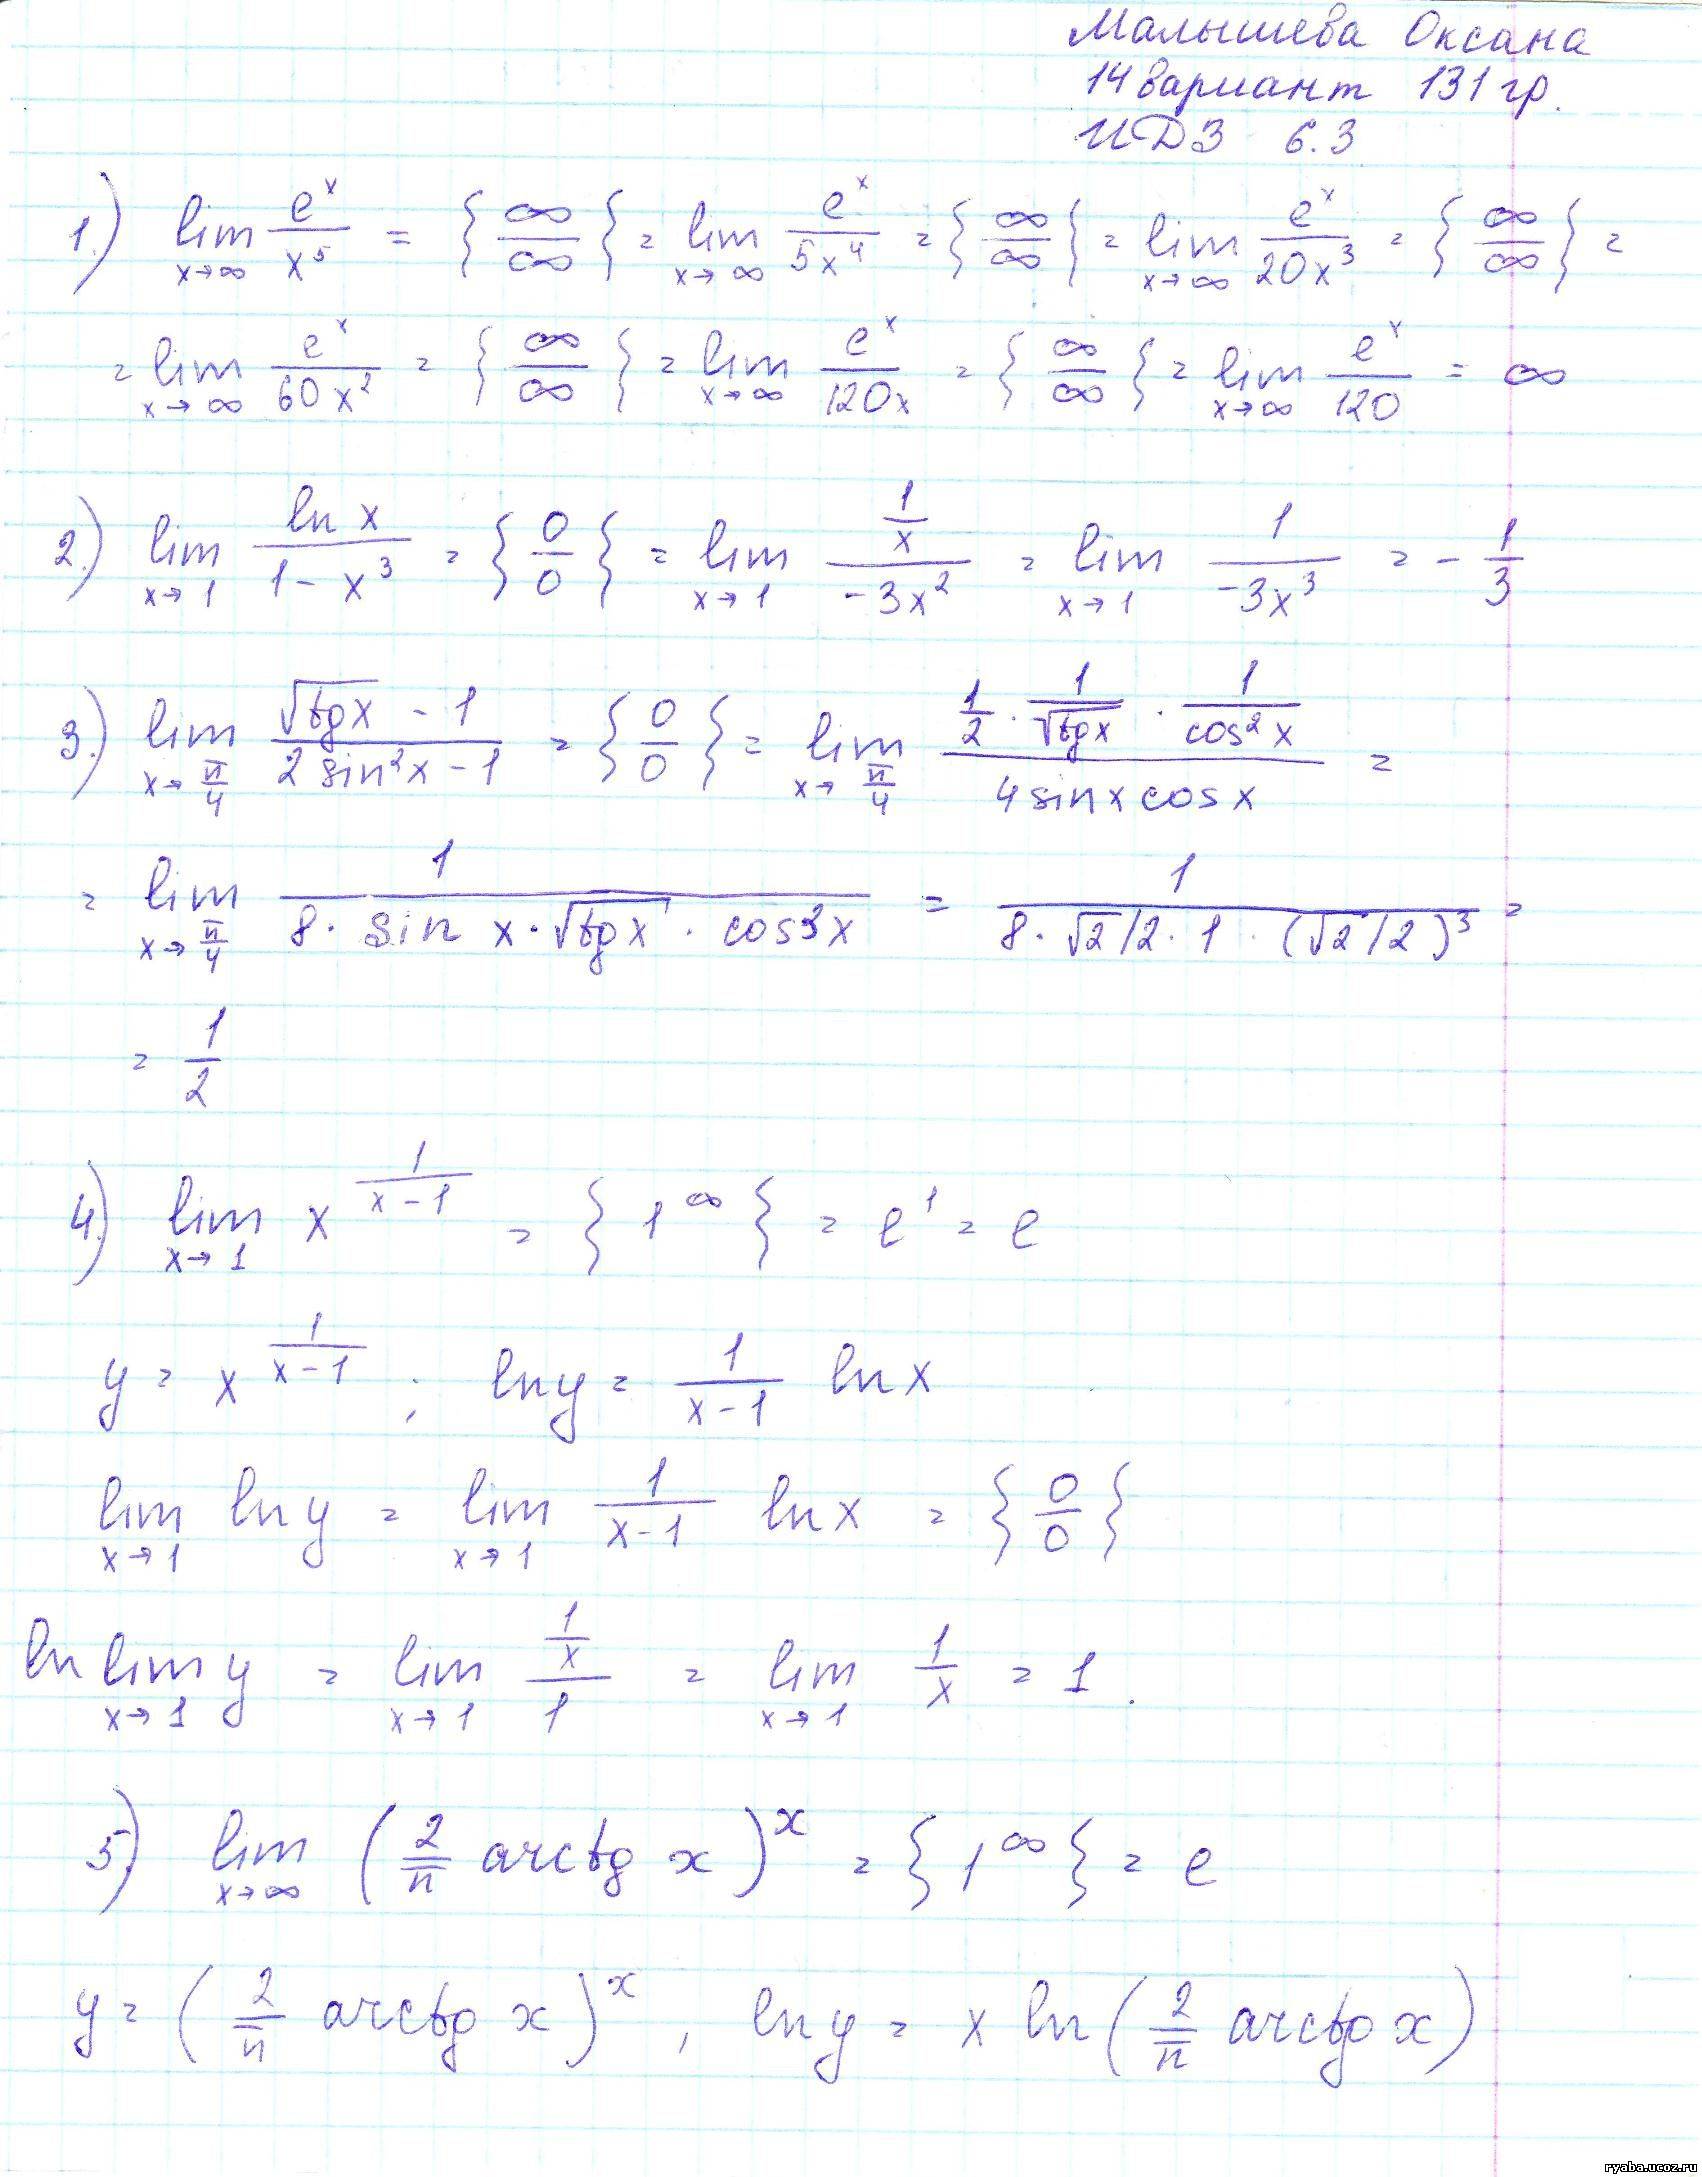 Малышева Оксана
14 вариант 131 гр.
ИДЗ 6.3
1.) lim x→∞ e^x/x^5 = {∞/∞} = lim x→∞ e^x/5x^4 = {∞/∞} = lim x→∞ e^x/20x^3 = {∞/∞} =
= lim x→∞ e^x/60x^2 = {∞/∞} = lim x→∞ e^x/120x = {∞/∞} = lim x→∞ e^x/120 = ∞
2.) lim x→1 ln x/(1-x^3) = {0/0} = lim x→1 (1/x)/(-3x^2) = lim x→1 1/(-3x^3) = -1/3
3.) lim x→π/4 (√tgx - 1)/(2 sin²x - 1) = {0/0} = lim x→π/4 (1/2 · 1/√tgx · 1/cos²x)/(4 sin x cos x) =
= lim x→π/4 1/(8 · sin x · √tgx · cos³x) = 1/(8 · √2/2 · 1 · (√2/2)³) =
= 1/2
4.) lim x→1 x^(1/(x-1)) = {1^∞} = e^1 = e
y = x^(1/(x-1)) ; ln y = 1/(x-1) ln x
lim x→1 ln y = lim x→1 1/(x-1) ln x = {0/0}
ln lim x→1 y = lim x→1 (1/x)/1 = lim x→1 1/x = 1.
5.) lim x→∞ (2/π arctg x)^x = {1^∞} = e
y = (2/π arctg x)^x , ln y = x ln(2/π arctg x)
ryaba.ucoz.ru